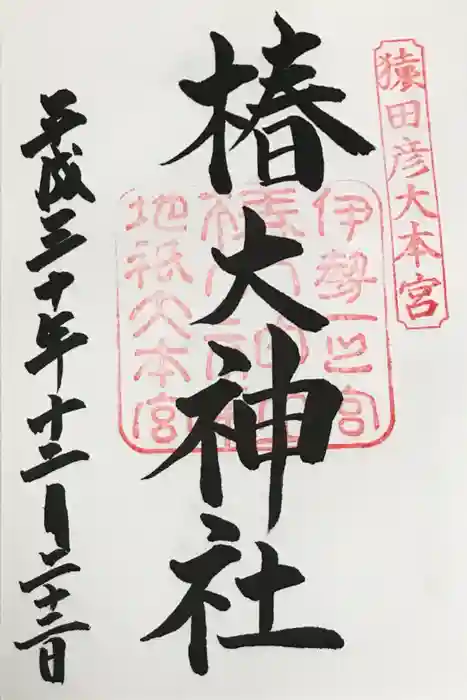 猿田彦大本宮
椿大神社
伊勢一之宮
地祇大本宮
平成三十年十二月二十三日